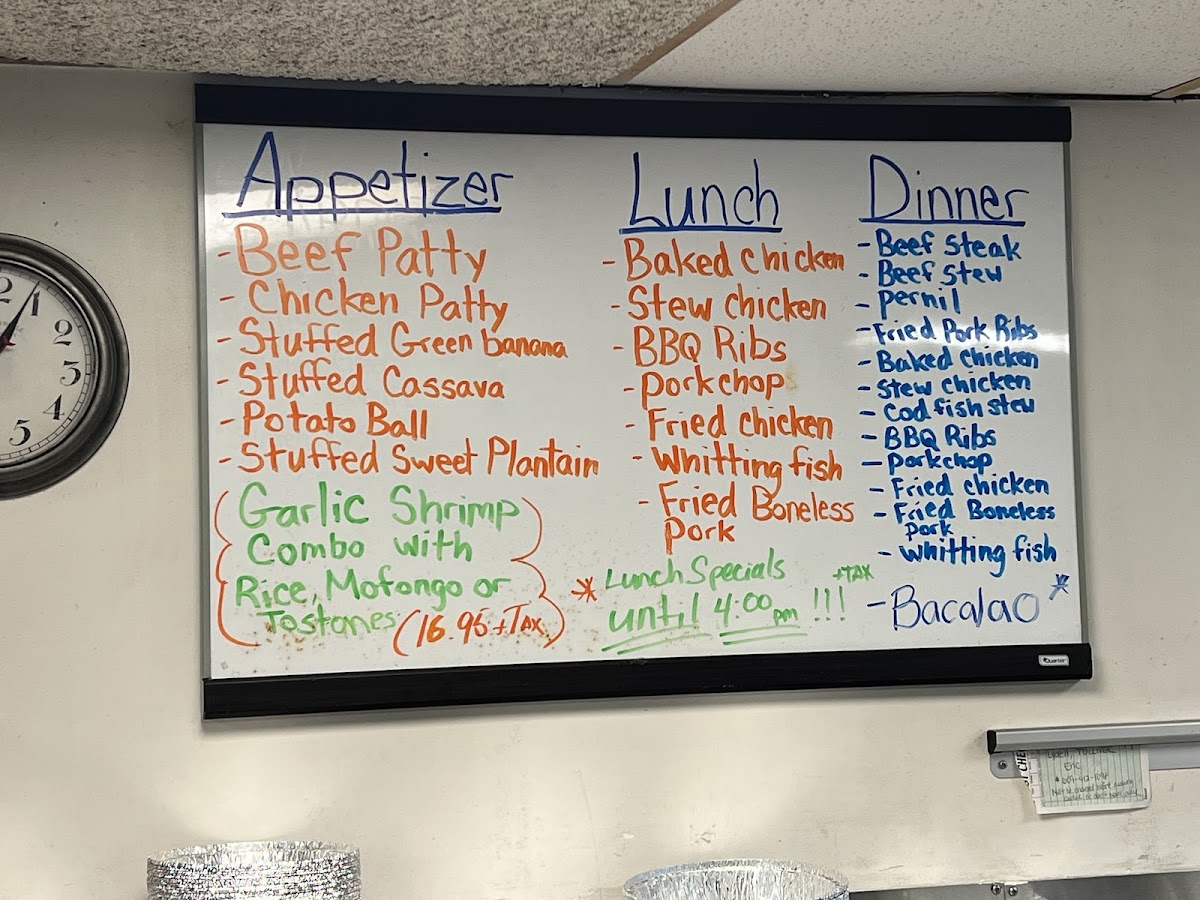 Appetizer
- Beef Patty
- Chicken Patty
- Stuffed Green banana
- Stuffed Cassava
- Potato Ball
- Stuffed Sweet Plantain
Garlic Shrimp
Combo with
Rice, Mofongo or
Tostones (16.95 + Tax)
Lunch
- Baked chicken
- Stew chicken
- BBQ Ribs
- Porkchops
- Fried chicken
- Whitting fish
- Fried Boneless
Pork
* Lunch Specials + TAX
until 4:00 pm !!!
Dinner
- Beef Steak
- Beef Stew
- Pernil
- Fried Pork Ribs
- Baked chicken
- Stew chicken
- Cod fish stew
- BBQ Ribs
- Porkchop
- Fried chicken
- Fried Boneless
Pork
- Whitting fish
- Bacalao *
Quartet
1
2
3
4
5
Eric